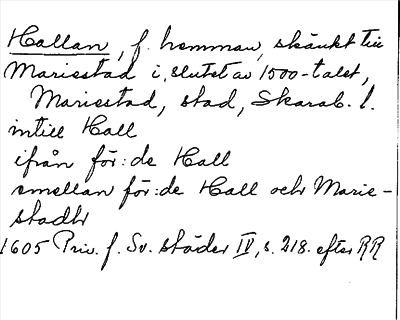 Hallan, f. hemman, skänkt till
Mariestad i slutet av 1500-talet,
Mariestad, stad, Skarab. l.
intill Hall
ifrån för:de Hall
emellan för:de Hall och Marie-
stadhr
1605 Priv. f. Sv. städer IV, s. 218. efter RR